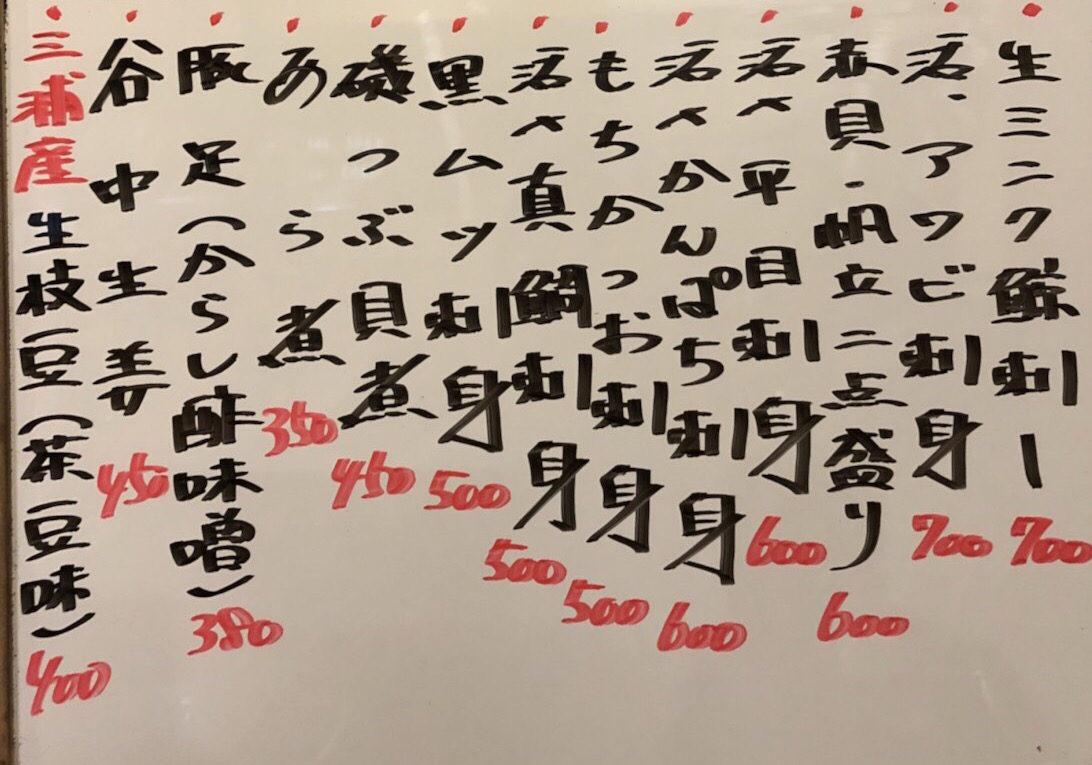 生ミニク鯨刺し 700
活・アワビ刺身 700
赤貝・帆立二点盛り 600
活〆平目刺身 600
活〆かんぱち刺身 600
もちかつお刺身 500
活〆真鯛刺身 500
黒ムツ刺身 500
磯つぶ貝煮 450
あら煮 350
豚足(からし酢味噌) 380
谷中生姜 450
三浦産生枝豆(茶豆味) 400